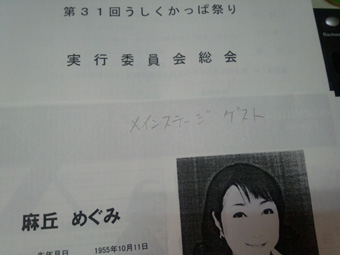 第31回うしくかっぱ祭り
実行委員会総会
メインステージ ゲスト
麻丘 めぐみ
生年月日 1955年10月11日